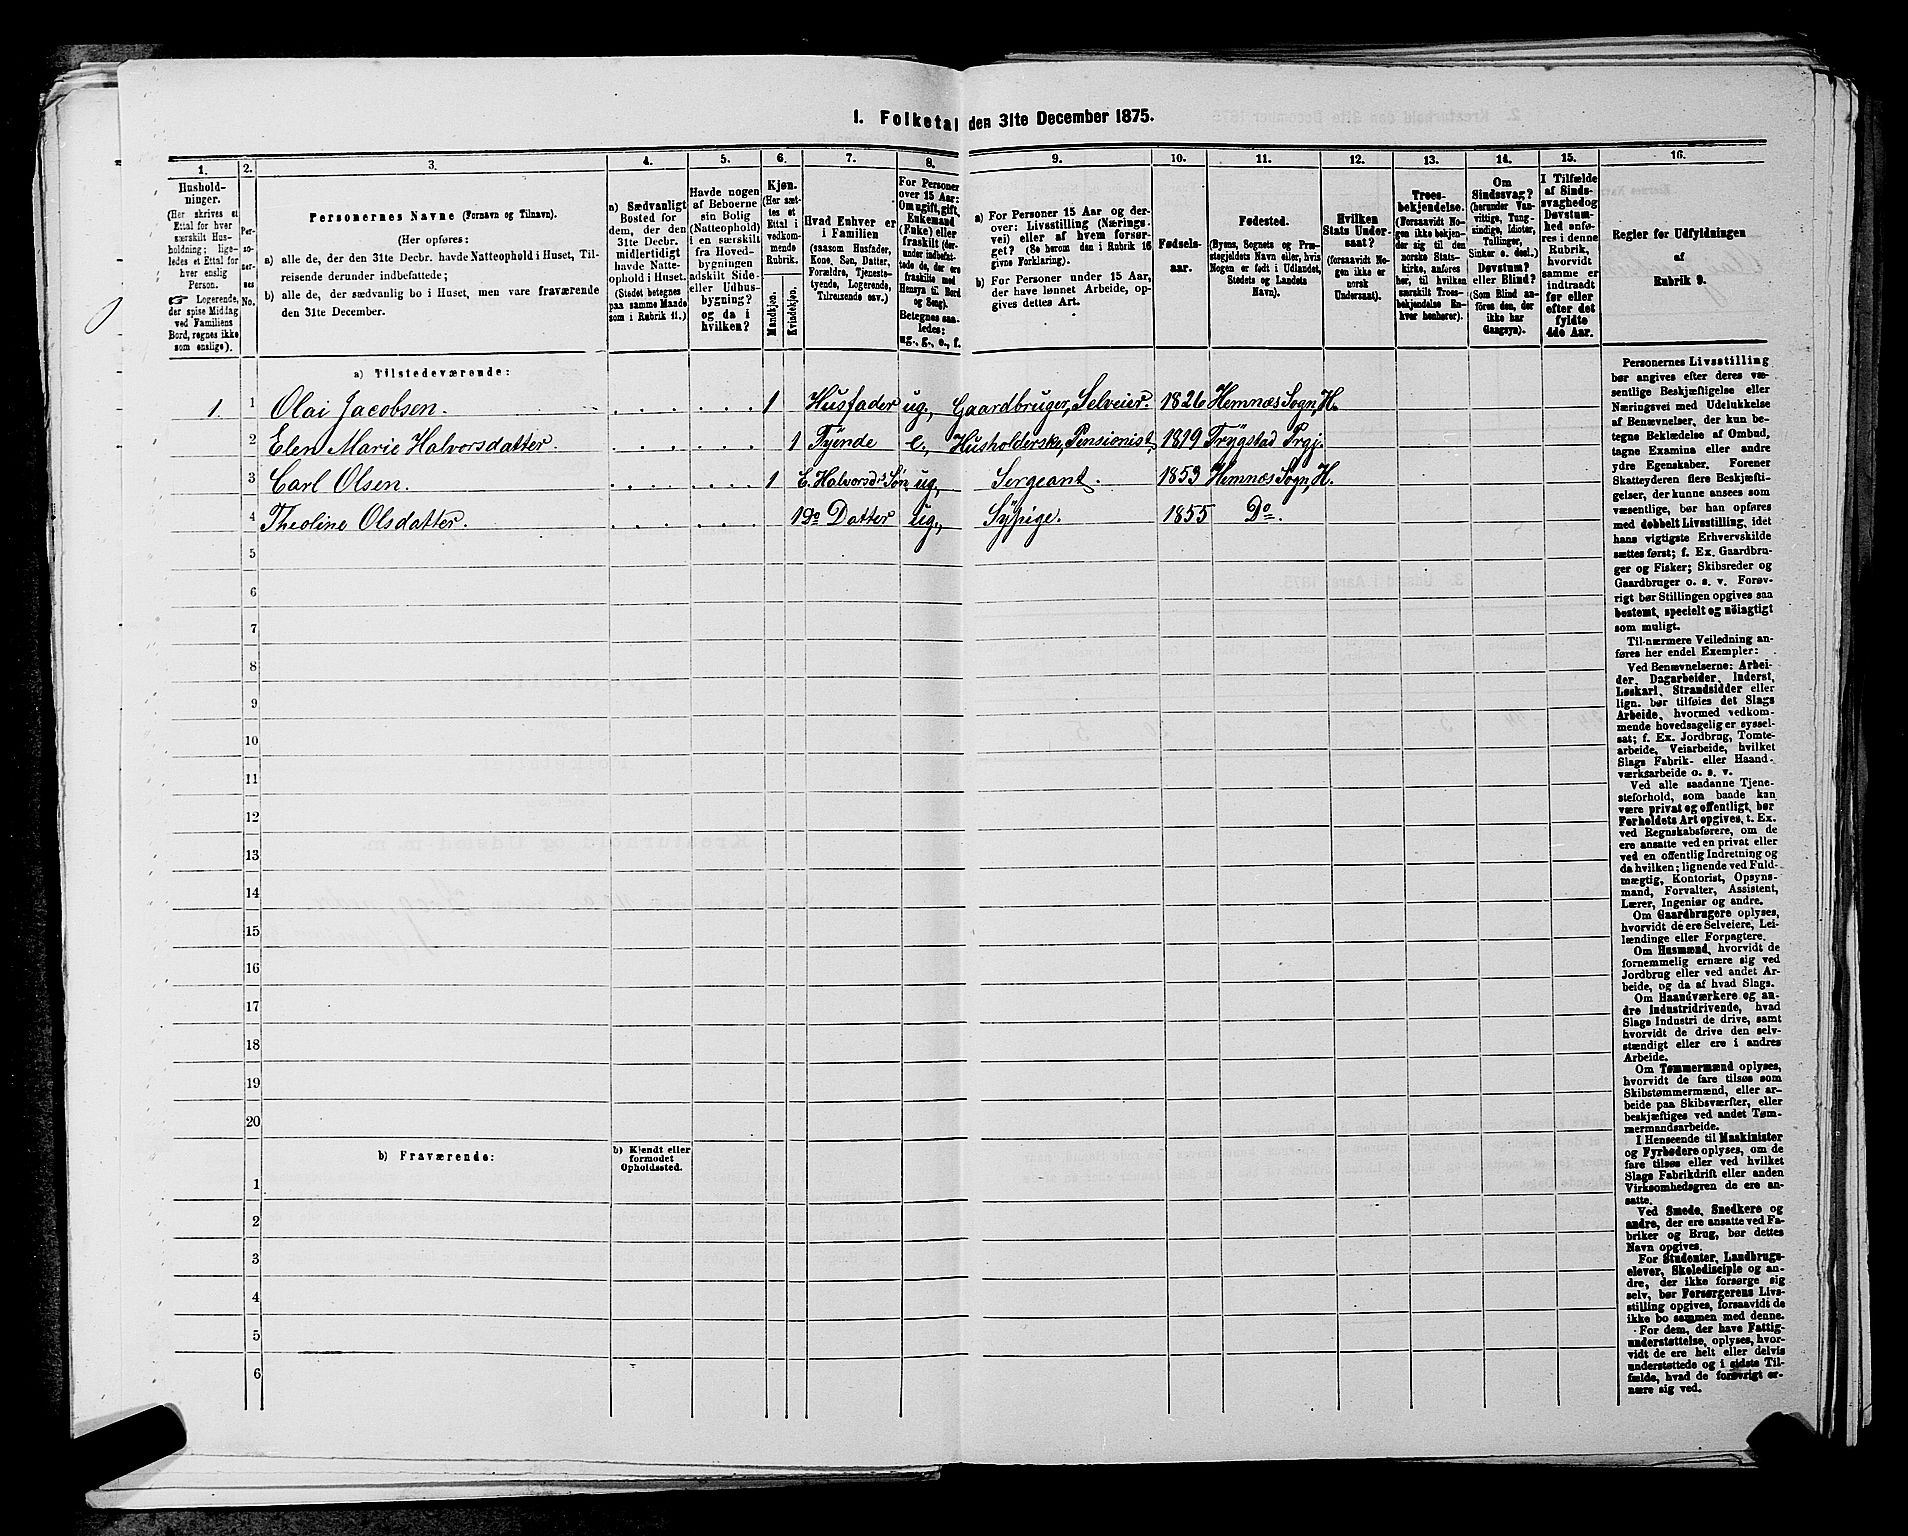 1. Folketal den 31te December 1875.
1. 2. 3. 4. 5. 6. 7. 8. 9. 10. 11. 12. 13. 14. 15. 16.
Hushold-
ninger.
(Her skrives et
Ettal for hver
særskilt Hus-
holdning; lige-
ledes et Ettal for
hver enslig
Person.
☛ Logerende,
der spise Middag
ved Familiens
Bord, regnes ikke
som enslige).
Per-
so-
ner-
nes
No.
Personernes Navne (Fornavn og Tilnavn).
(Her opføres:
a) alle de, der den 31te Decbr. havde Natteophold i Huset, Til-
reisende derunder indbefattede;
b) alle de, der sædvanlig bo i Huset, men vare fraværende
den 31te December.
a) Sædvanligt
Bosted for
dem, der den
31te Decbr.
midlertidigt
havde Natte-
ophold i Huset.
(Stedet betegnes
paa samme Maade
som i Rubrik 11.)
Havde nogen
af Beboerne
sin Bolig
(Natteophold)
i en særskilt
fra Hoved-
bygningen
adskilt Side-
eller Udhus-
bygning?
og da i
hvilken?
Kjøn.
(Her sæt-
tes et
Ettal i
vedkom-
mende
Rubrik.
Mandkjøn.
Kvindekjøn.
Hvad Enhver er
i Familien
(saasom Husfader,
Kone, Søn, Datter,
Forældre, Tjeneste-
tyende, Logerende,
Tilreisende osv.)
For Personer
over 15 Aar:
Om ugift, gift,
Enkemand
(Enke) eller
fraskilt (der-
under indbefat-
tede de, der ere
fraskilte med
Hensyn til Bord
og Seng).
Betegnes saa-
ledes:
ug., g., e., f.
a) For Personer 15 Aar og der-
over: Livsstilling (Nærings-
vei) eller af hvem forsør-
get? (Se herom den i Rubrik 16
givne Forklaring).
b) For Personer under 15 Aar,
der have lønnet Arbeide, op-
gives dettes Art.
Fødsels-
aar.
Fødested.
(Byens, Sognets og Præ-
stegjeldets Navn eller, hvis
Nogen er født i Udlandet,
Stedets og Landets
Navn).
Hvilken
Stats Under-
saat?
(forsaavidt No-
gen ikke er
norsk
Undersaat).
Troes-
bekjendelse.
(Forsaavidt No-
gen ikke bekjen-
der sig til den
norske Stats-
kirke, anføres
her, til hvilken
særskilt Troes-
bekjendelse En-
hver henhører).
Om
Sindssvag?
(herunder Van-
vittige, Tung-
sindige, Idioter,
Tullinger,
Sinker o. desl.).
Døvstum?
eller Blind?
(Som Blind an-
føres den, der
ikke har
Gangsyn).
I Tilfælde
af Sinds-
svaghed og
Døvstum-
hed anfø-
res i denne
Rubrik,
hvorvidt
samme er
indtraadt
før eller
efter det
fyldte
4de Aar.
Regler for Udfyldningen
af
Rubrik 9.
a) Tilstedeværende:
1 1 Olai Jacobsen. 1 Husfader ug., Gaardbruger, Selveier. 1826 Hemnæs Sogn, H.
2 Elen Marie Halvorsdatter 1 Tyende e., Husholderske, Pensionist, 1819 Trygstad Prgj.
3 Carl Olsen. 1 E. Halvorsdr Søn ug., Sergeant. 1853 Hemnæs Sogn, H.
4 Theoline Olsdatter. 1 Do Datter ug., Sypige. 1855 Do.
5
6
7
8
9
10
11
12
13
14
15
16
17
18
19
20
b) Fraværende:
b) Kjendt eller
formodet
Opholdssted.
1
2
3
4
5
6
Personernes Livsstilling
bør angives efter deres væ-
sentlige Beskjæftigelse eller
Næringsvei med Udelukkelse
af Benævnelser, der kun be-
tegne Beklædelse af Ombud,
tagne Examina eller andre
ydre Egenskaber. Forener
Skatteyderen flere Beskjæfti-
gelser, der kunne ansees som
væsentlige, bør han opføres
med dobbelt Livsstilling, idet
hans vigtigste Erhvervskilde
sættes først; f. Ex. Gaardbru-
ger og Fisker; Skibsreder og
Gaardbruger o. s. v. Forøv-
rigt bør Stillingen opgives saa
bestemt, specielt og nøiagtigt
som muligt.
Til nærmere Veiledning an-
føres her endel Exempler:
Ved Benævnelserne: Arbei-
der, Dagarbeider, Inderst,
Løskarl, Strandsidder eller
lign. bør tilføies det Slags
Arbeide, hvormed vedkom-
mende hovedsagelig er syssel-
sat; f. Ex. Jordbrug, Tomte-
arbeide, Veiarbeide, hvilket
Slags Fabrik- eller Haand-
værksarbeide o. s. v.
Ved alle saadanne Tjene-
steforhold, som baade kan
være privat og offentligt, bør
Forholdets Art opgives, t. Ex.
ved Regnskabsførere, om de
ere ansatte ved en privat eller
ved en offentlig Indretning og
da hvilken; lignende ved Fuld-
mægtig, Kontorist, Opsyns-
mand, Forvalter, Assistent,
Lærer, Ingeniør og andre.
Om Gaardbrugere oplyses,
hvorvidt de ere Selveiere, Lei-
lændinge eller Forpagtere.
Om Husmænd, hvorvidt de
fornemmelig ernære sig ved
Jordbrug eller ved andet Ar-
beide, og da af hvad Slags.
Om Haandværkere og an-
dre Industridrivende, hvad
Slags Industri de drive, samt
hvorvidt de drive den selv-
stændigt eller ere i andres
Arbeide.
Om Tømmermænd oplyses,
hvorvidt de fare tilsøs som
Skibstømmermænd, eller ar-
beide paa Skibsværfter, eller
beskjæftiges ved andet Tøm-
mermandsarbeide.
I Henseende til Maskinister
og Fyrbødere oplyses, om de
fare tilsøs eller ved hvilket
Slags Fabrikdrift eller anden
Virksomhedsgren de ere an-
satte.
Ved Smede, Snedkere og
andre, der ere ansatte ved Fa-
briker og Brug, bør dettes
Navn opgives.
For Studenter, Landbrugs-
elever, Skoledisciple og an-
dre, der ikke forsørge sig
selv, bør Forsørgerens Livs-
stilling opgives, forsaavidt de
ikke bo sammen med denne.
For dem, der have Fattig-
understøttelse, oplyses, hvor-
vidt de ere helt eller delvis
understøttede og i sidste Til-
fælde, hvad de forøvrigt er-
nære sig ved.